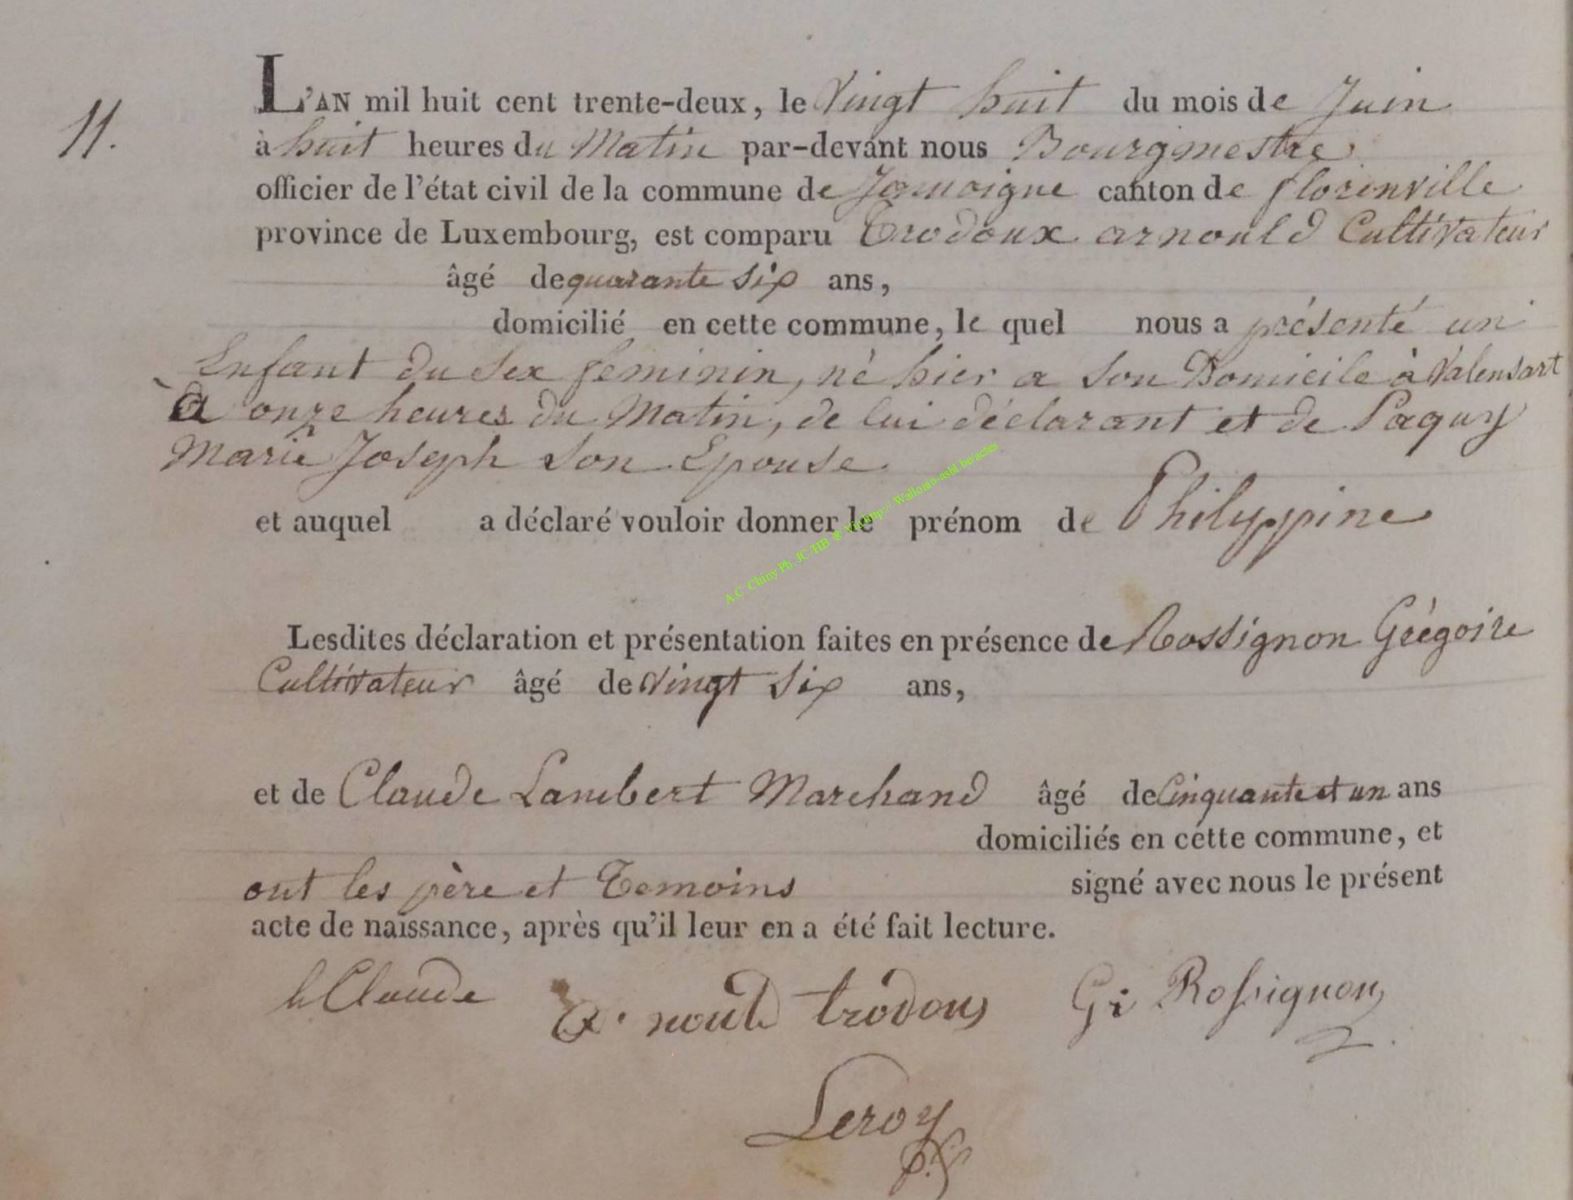 11.
L'AN mil huit cent trente-deux, le Vingt huit du mois de Juin
à huit heures du Matin par-devant nous Bourgmestre
officier de l'état civil de la commune de Jamoigne canton de florenville
province de Luxembourg, est comparu Trodoux arnould Cultivateur
âgé de quarante Six ans,
domicilié en cette commune, le quel nous a présenté un
Enfant du Sex feminin, né hier a Son Domicile à Valensart
à onze heures du Matin, de lui déclarant et de Paquy
Marie Joseph Son Epouse.
et auquel a déclaré vouloir donner le prénom de Philyppine
Lesdites déclaration et présentation faites en présence de Rossignon Grégoire
Cultivateur âgé de Vingt Six ans,
et de Claude Lambert Marchand âgé de Cinquante et un ans
domiciliés en cette commune, et
ont les père et Temoins signé avec nous le présent
acte de naissance, après qu'il leur en a été fait lecture.
Claude nould trodoux Gé Rossignon
Leroy
A.C. Chiny Ph. JC HB